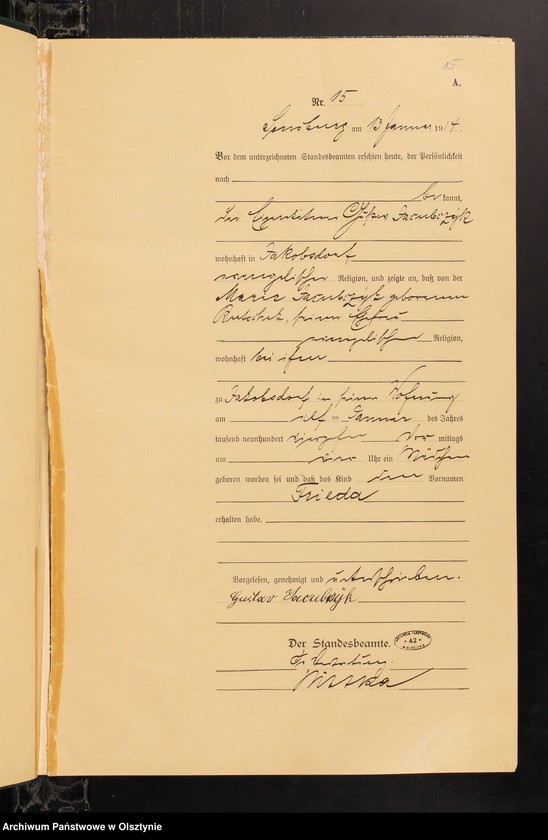 15
A.
Nr. 15
Sensburg am 13 Januar 1914.
Vor dem unterzeichneten Standesbeamten erschien heute, der Persönlichkeit
nach
be kannt,
der Gustav Jacubczyk
wohnhaft in Jakobsdorf
evangelischer Religion, und zeigte an, daß von der
Marie Jacubczyk geborenen
seiner Ehefrau
evangelischer Religion,
wohnhaft bei ihm
zu Jakobsdorf in seiner Wohnung
am elf ten Januar des Jahres
tausend neunhundert vierzehn Vor mittags
um vier Uhr ein Mädchen
geboren worden sei und daß das Kind den Vornamen
Frieda
erhalten habe.
Vorgelesen, genehmigt und unterschrieben.
Gustav Jacubczyk
Der Standesbeamte.
42
In Vertretung.
Archiwum Państwowe w Olsztynie